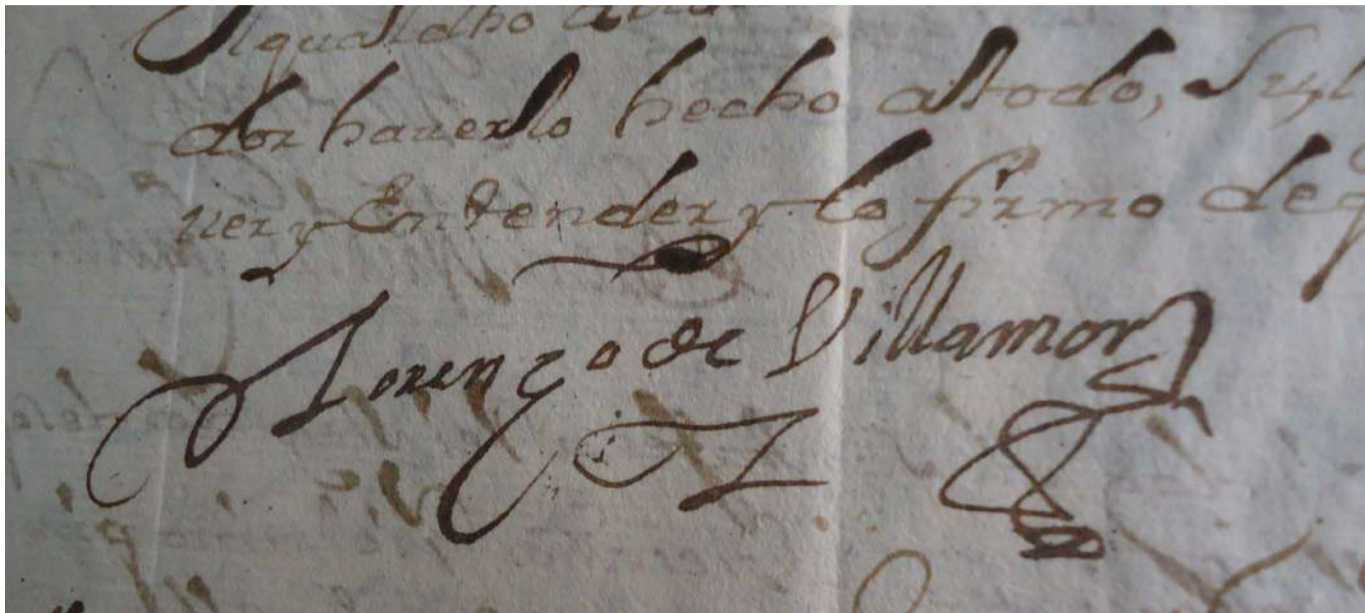 dor haverlo hecho a todo, Su
ver y Entender y lo firmo de
Lorenzo de Villamor